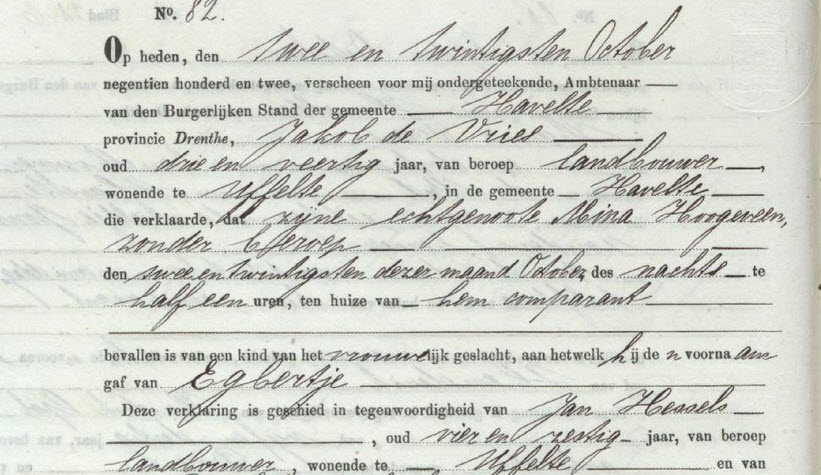 No. 82.
Op heden, den twee en twintigsten October
negentien honderd en twee, verscheen voor mij ondergeteekende, Ambtenaar
van den Burgerlijken Stand der gemeente Havelte
provincie Drenthe, Jakob de Vries
oud drie en veertig jaar, van beroep landbouwer,
wonende te Uffelte, in de gemeente Havelte
die verklaarde, dat zijne echtgenoote Mina Hoogeveen,
zonder beroep
den twee en twintigsten dezer maand October, des nachts te
half een uren, ten huize van hem comparant
bevallen is van een kind van het vrouwelijk geslacht, aan hetwelk hij den voornaam
gaf van Egbertje
Deze verklaring is geschied in tegenwoordigheid van Jan Hessels
, oud vier en zestig jaar, van beroep
landbouwer, wonende te Uffelte en van